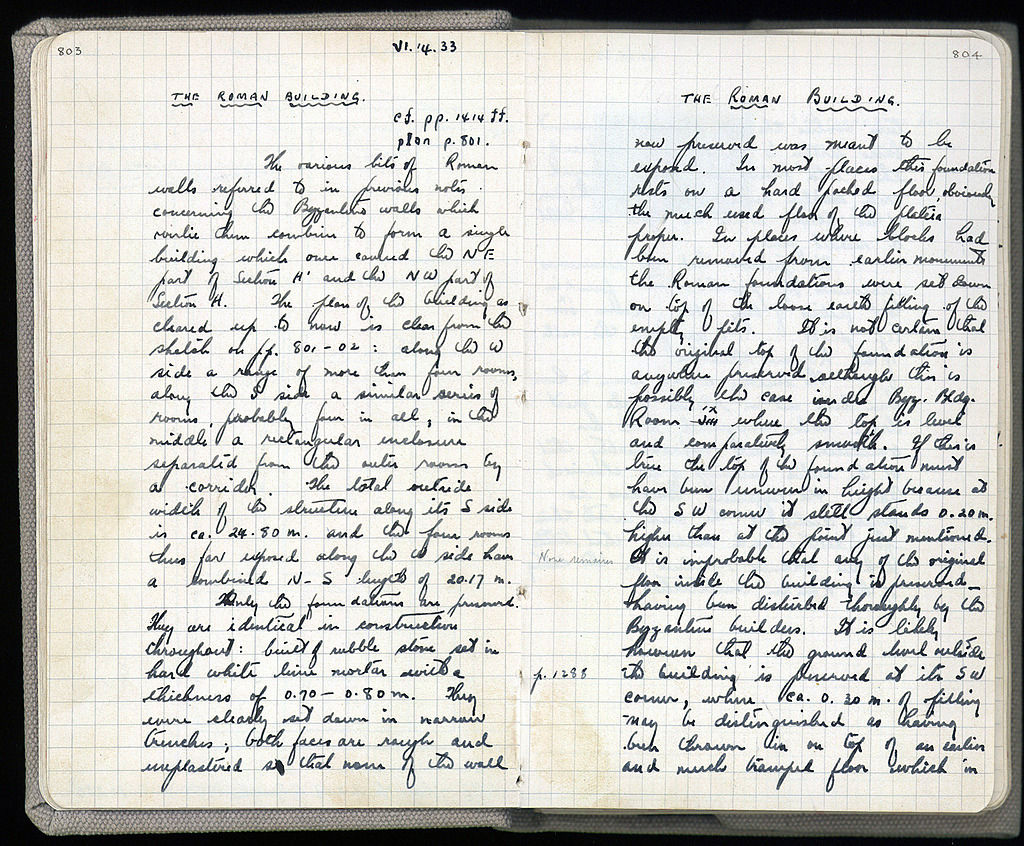 803
VI.14.33
THE ROMAN BUILDING.
cf. pp. 1414 ff.
plan p. 801.
The various bits of Roman
walls referred to in previous notes
concerning the Byzantine walls which
overlie them combine to form a single
building which once covered the NE
part of Section H' and the NW part of
Section H. The plan of the building as
cleared up to now is clear from the
sketch on pp. 801-02: along the W
side a range of more than four rooms,
along the S side a similar series of
rooms, probably four in all; in the
middle a rectangular enclosure
separated from the outer rooms by
a corridor. The total outside
width of the structure along its S side
is ca. 24.80 m. and the four rooms
thus far exposed along the W side have
a combined N-S length of 20.17 m.
Only the foundations are preserved.
They are identical in construction
throughout: built of rubble stone set in
hard white lime mortar with a
thickness of 0.70-0.80 m. They
were clearly set down in narrow
trenches; both faces are rough and
unplastered so that none of the wall
804
THE ROMAN BUILDING.
now preserved was meant to be
exposed. In most places this foundation
rests on a hard packed floor, obviously
the much used floor of the plateia
proper. In places where blocks had
been removed from earlier monuments
the Roman foundations were set down
on top of the loose earth filling of the
empty pits. It is not certain that
the original top of the foundation is
anywhere preserved although this is
possibly the case in Byz. Bldg.
Room where the top is level
and comparatively smooth. If this is
true the top of the foundation must
have been uneven in height because at
the SW corner it still stands 0.20 m.
higher than at the point just mentioned.
None remains
It is improbable that any of the original
floor inside the building is preserved—
having been disturbed thoroughly by the
Byzantine builders. It is likely
however that the ground level outside
p. 1288
the building is preserved at its SW
corner, where ca. 0.30 m. of filling
may be distinguished as having
been thrown in on top of an earlier
and much tramped floor which in